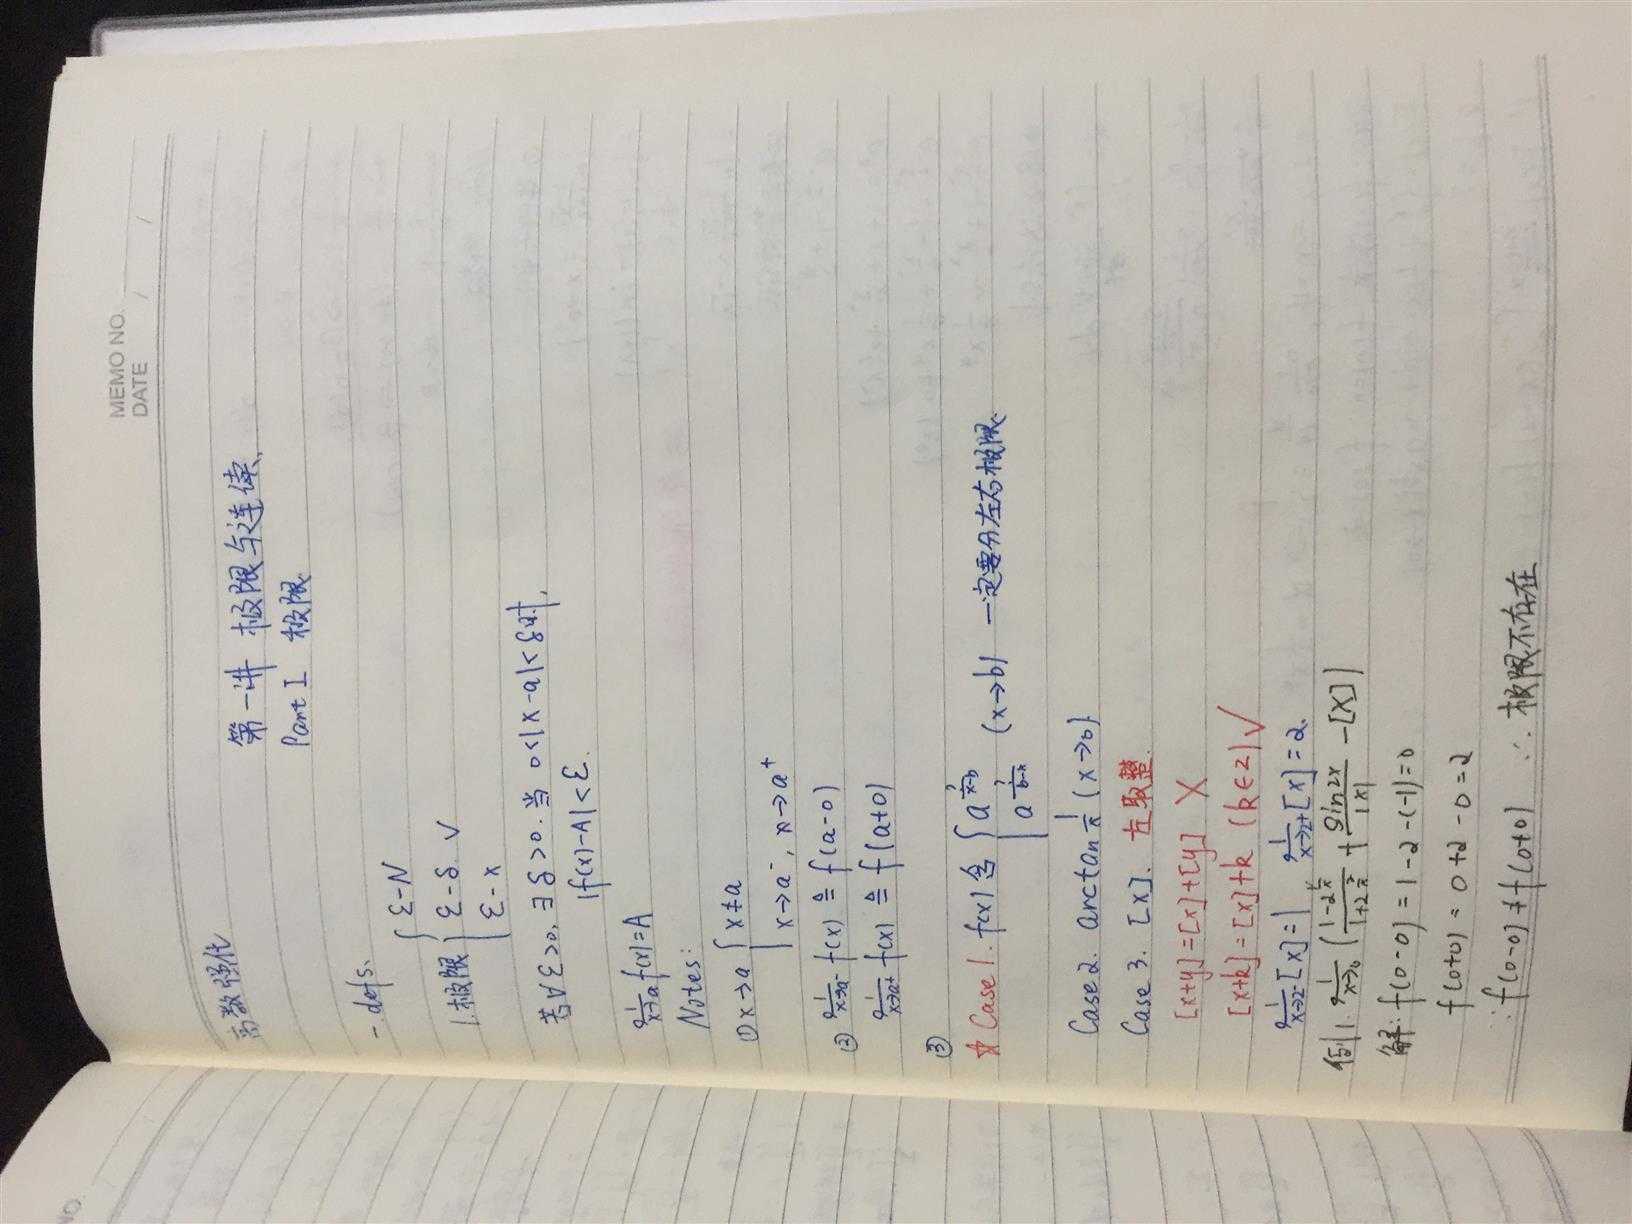 MEMO NO.
DATE / /
高数强化
第一讲 极限与连续.
Part I 极限.
一 defs.
1.极限 { ε-N
ε-δ √
ε-x
若∀ε>0, ∃δ>0. 当 0<|x-a|<δ时,
|f(x)-A|<ε.
lim x→a f(x)=A
Notes:
① x→a { x≠a
x→a⁻, x→a⁺
② lim x→a⁻ f(x) ≜ f(a-0)
lim x→a⁺ f(x) ≜ f(a+0)
③
☆ Case 1. f(x)含 { a^(1/(x-b))
a^(1/(b-x)) (x→b) 一定要分左右极限.
Case 2. arctan 1/x (x→b)
Case 3. [x]. 左取整.
[x+y]=[x]+[y] ×
[x+k]=[x]+k (k∈Z) √
lim x→2⁻ [x]=1 lim x→2⁺ [x]=2.
例1. lim x→0 ( (1-2^(1/x))/(1+2^(1/x)) + sin2x/|x| - [x] )
解: f(0-0)=1-2-(-1)=0
f(0+0)=0+2-0=2
∵ f(0-0)≠f(0+0) ∴ 极限不存在
NO.